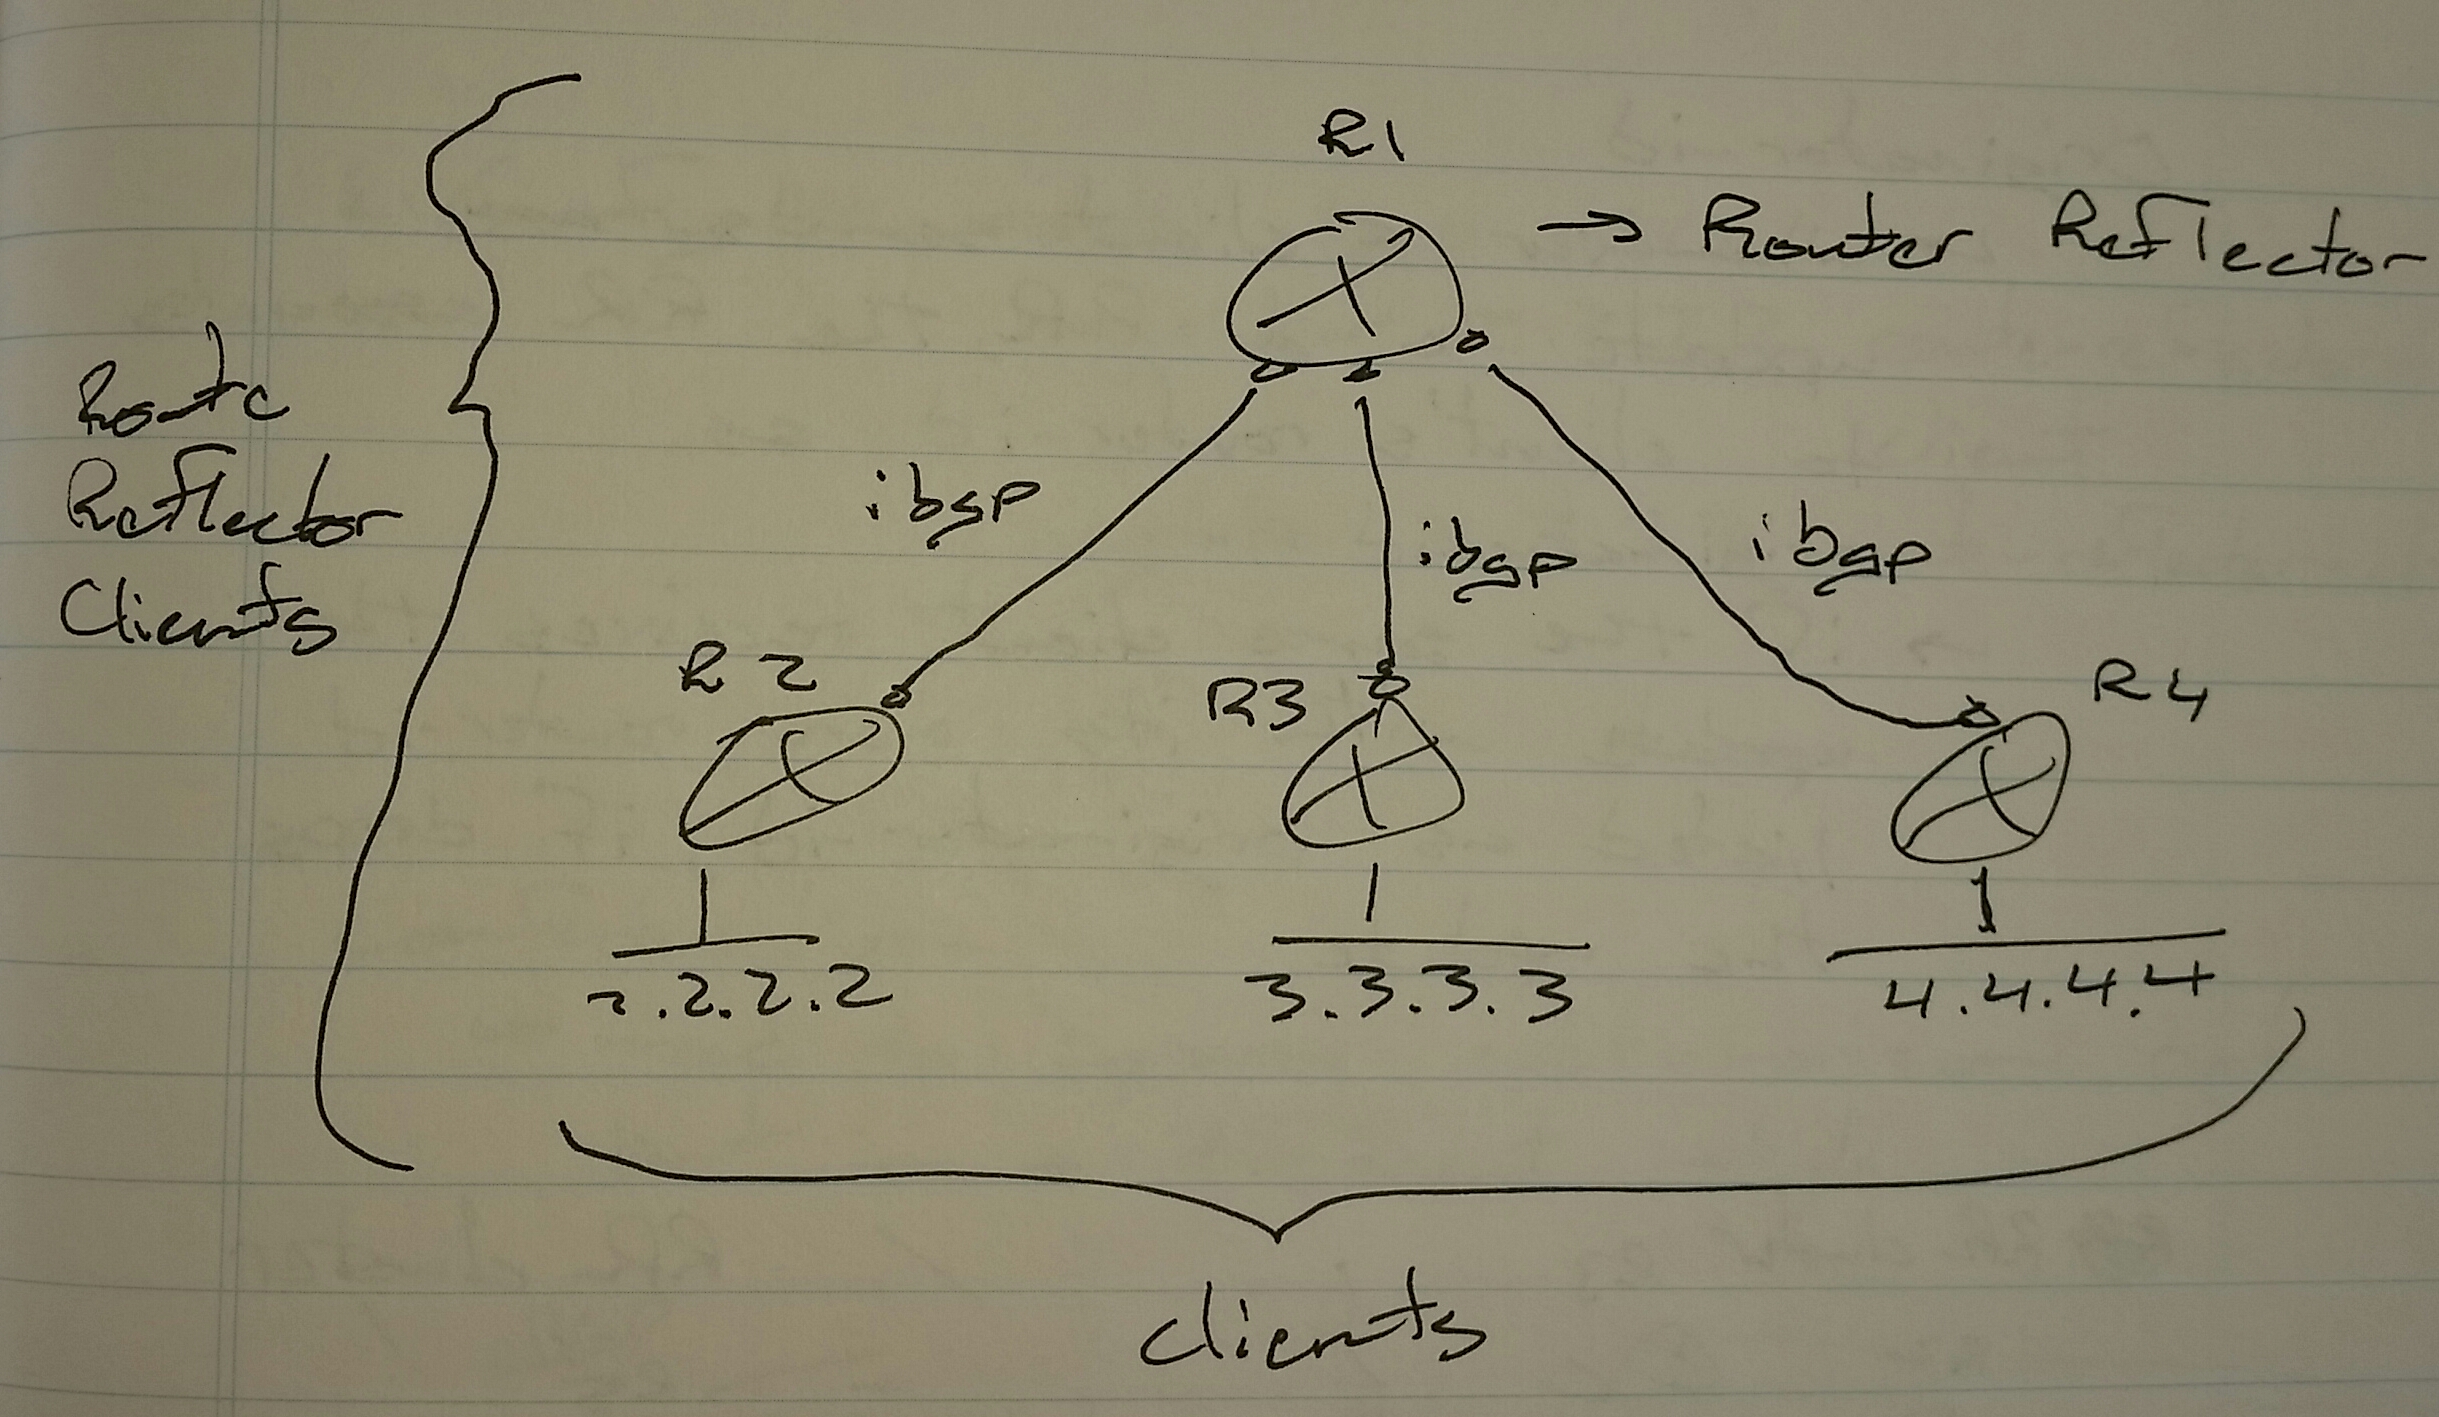 R1
→ Router Reflector
Route
Reflector
Clients
ibgp
ibgp
ibgp
R2
R3
R4
2.2.2.2
3.3.3.3
4.4.4.4
clients